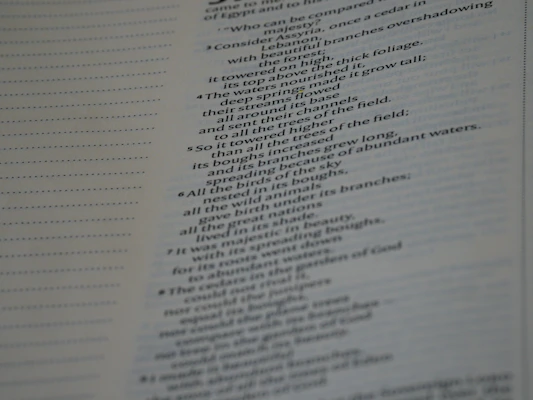 came to me
of Egypt and to his
"'Who can be compared
majesty?
3 Consider Assyria, once a cedar in
Lebanon,
with beautiful branches overshadowing
the forest;
it towered on high,
its top above the thick foliage.
4 The waters nourished it,
deep springs made it grow tall;
their streams flowed
all around its base
and sent their channels
to all the trees of the field.
5 So it towered higher
than all the trees of the field;
its boughs increased
and its branches grew long,
spreading because of abundant waters.
6 All the birds of the sky
nested in its boughs,
all the wild animals
gave birth under its branches;
all the great nations
lived in its shade.
7 It was majestic in beauty,
with its spreading boughs,
for its roots went down
to abundant waters.
8 The cedars in the garden of God
could not rival it,
nor could the junipers
equal its boughs,
nor could the plane trees
compare with its branches—
no tree in the garden of God
could match its beauty.
9 I made it beautiful
with abundant branches,